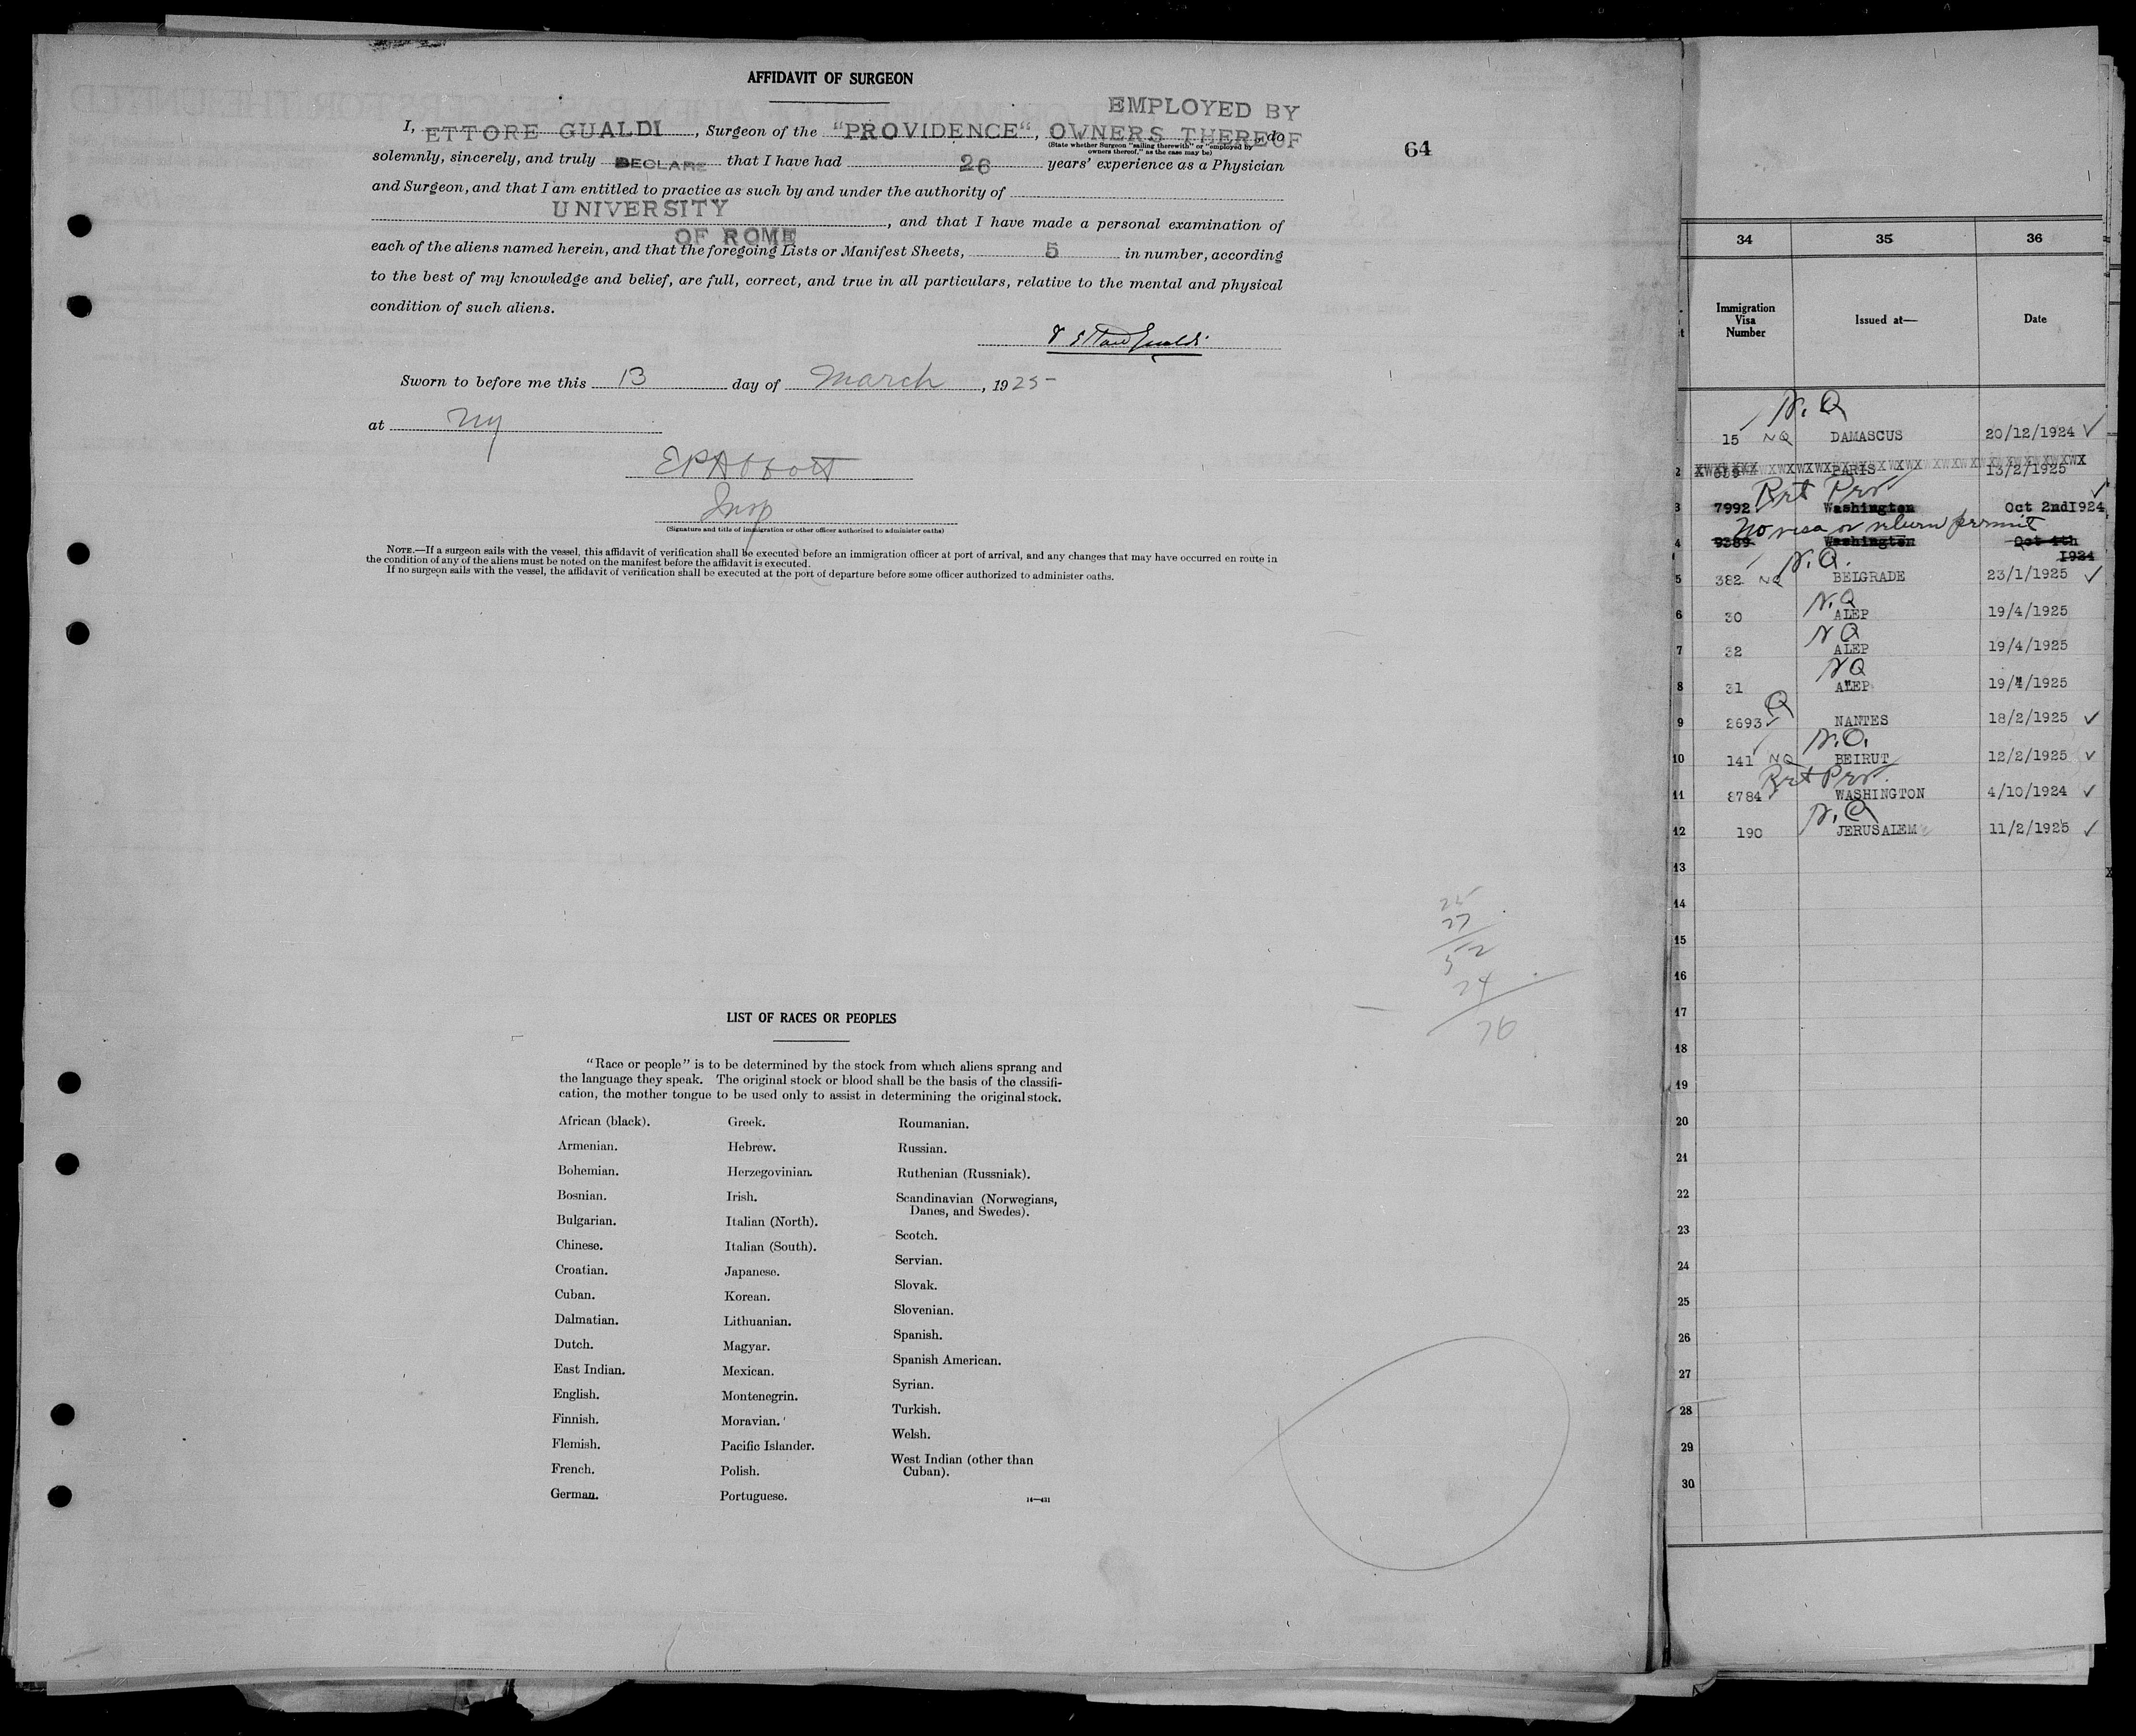 AFFIDAVIT OF SURGEON
EMPLOYED BY
I, ETTORE GUALDI, Surgeon of the "PROVIDENCE", OWNERS THEREOF do
(State whether Surgeon "sailing therewith" or "employed by
owners thereof," as the case may be)
solemnly, sincerely, and truly DECLARE that I have had 26 years' experience as a Physician
and Surgeon, and that I am entitled to practice as such by and under the authority of
UNIVERSITY
OF ROME, and that I have made a personal examination of
each of the aliens named herein, and that the foregoing Lists or Manifest Sheets, 5 in number, according
to the best of my knowledge and belief, are full, correct, and true in all particulars, relative to the mental and physical
condition of such aliens.
Sworn to before me this 13 day of March, 1925
at NY
EP Abbott
Insp
(Signature and title of immigration or other officer authorized to administer oaths)
NOTE.—If a surgeon sails with the vessel, this affidavit of verification shall be executed before an immigration officer at port of arrival, and any changes that may have occurred en route in
the condition of any of the aliens must be noted on the manifest before the affidavit is executed.
If no surgeon sails with the vessel, the affidavit of verification shall be executed at the port of departure before some officer authorized to administer oaths.
64
25
27
52
24
76
LIST OF RACES OR PEOPLES
"Race or people" is to be determined by the stock from which aliens sprang and
the language they speak. The original stock or blood shall be the basis of the classifi-
cation, the mother tongue to be used only to assist in determining the original stock.
African (black).
Armenian.
Bohemian.
Bosnian.
Bulgarian.
Chinese.
Croatian.
Cuban.
Dalmatian.
Dutch.
East Indian.
English.
Finnish.
Flemish.
French.
German.
Greek.
Hebrew.
Herzegovinian.
Irish.
Italian (North).
Italian (South).
Japanese.
Korean.
Lithuanian.
Magyar.
Mexican.
Montenegrin.
Moravian.
Pacific Islander.
Polish.
Portuguese.
Roumanian.
Russian.
Ruthenian (Russniak).
Scandinavian (Norwegians,
Danes, and Swedes).
Scotch.
Servian.
Slovak.
Slovenian.
Spanish.
Spanish American.
Syrian.
Turkish.
Welsh.
West Indian (other than
Cuban).
14—431
34 35 36
Immigration
Visa
Number
Issued at—
Date
N.Q
15 NQ DAMASCUS 20/12/1924 ✓
2 PARIS 13/2/1925
Ret Per
3 7992 Washington Oct 2nd1924
No visa or return permit
4 9389 Washington Oct 4th
1924
N.Q.
5 382 NQ BELGRADE 23/1/1925 ✓
N.Q
6 30 ALEP 19/4/1925
NQ
7 32 ALEP 19/4/1925
NQ
8 31 ALEP 19/4/1925
Q
9 2693 NANTES 18/2/1925 ✓
N.Q.
10 141 NQ BEIRUT 12/2/1925 ✓
Ret Per
11 8784 WASHINGTON 4/10/1924 ✓
N.Q
12 190 JERUSALEM 11/2/1925 ✓
13
14
15
16
17
18
19
20
21
22
23
24
25
26
27
28
29
30